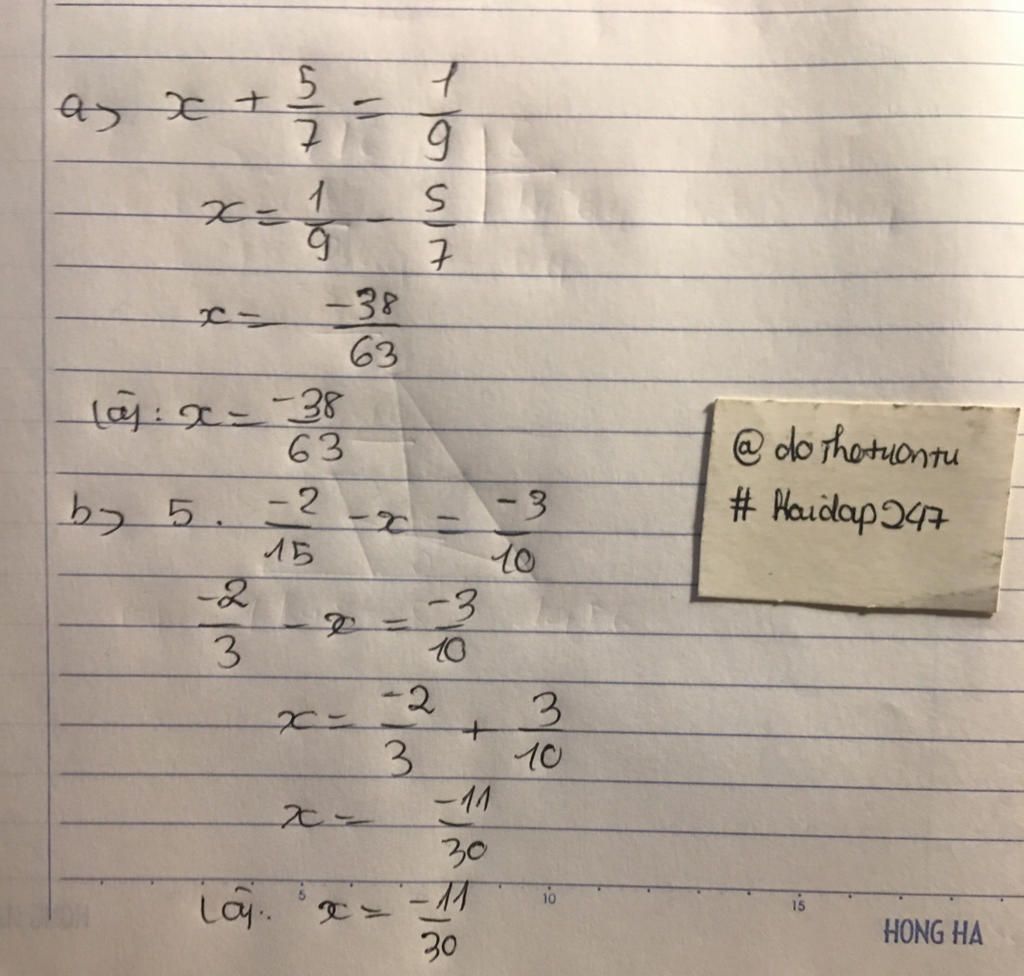 a) x + 5/7 = 1/9
x = 1/9 - 5/7
x = -38/63
Vậy: x = -38/63
b) 5 . -2/15 - x = -3/10
-2/3 - x = -3/10
x = -2/3 + 3/10
x = -11/30
Vậy: x = -11/30
@dothotuantu
# Hoidap247
5 10 15
HONG HA